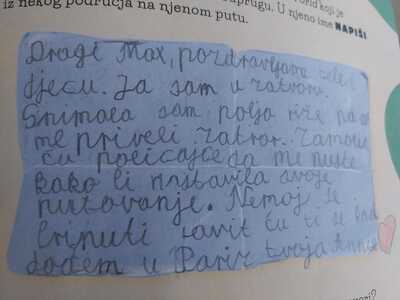 iz nekog područja na njenom putu.
suprugu. U njeno ime NAPIŠI
Dragi Max, pozdravljam tebe i
djecu. Ja sam u zatvoru.
Snimala sam polja riže pa su
me priveli zatvor. Zamolit
ću policajce da me puste
kako bi nastavila svoje
putovanje. Nemoj se
brinuti javit ću ti se kad
dođem u Pariz tvoja Annie